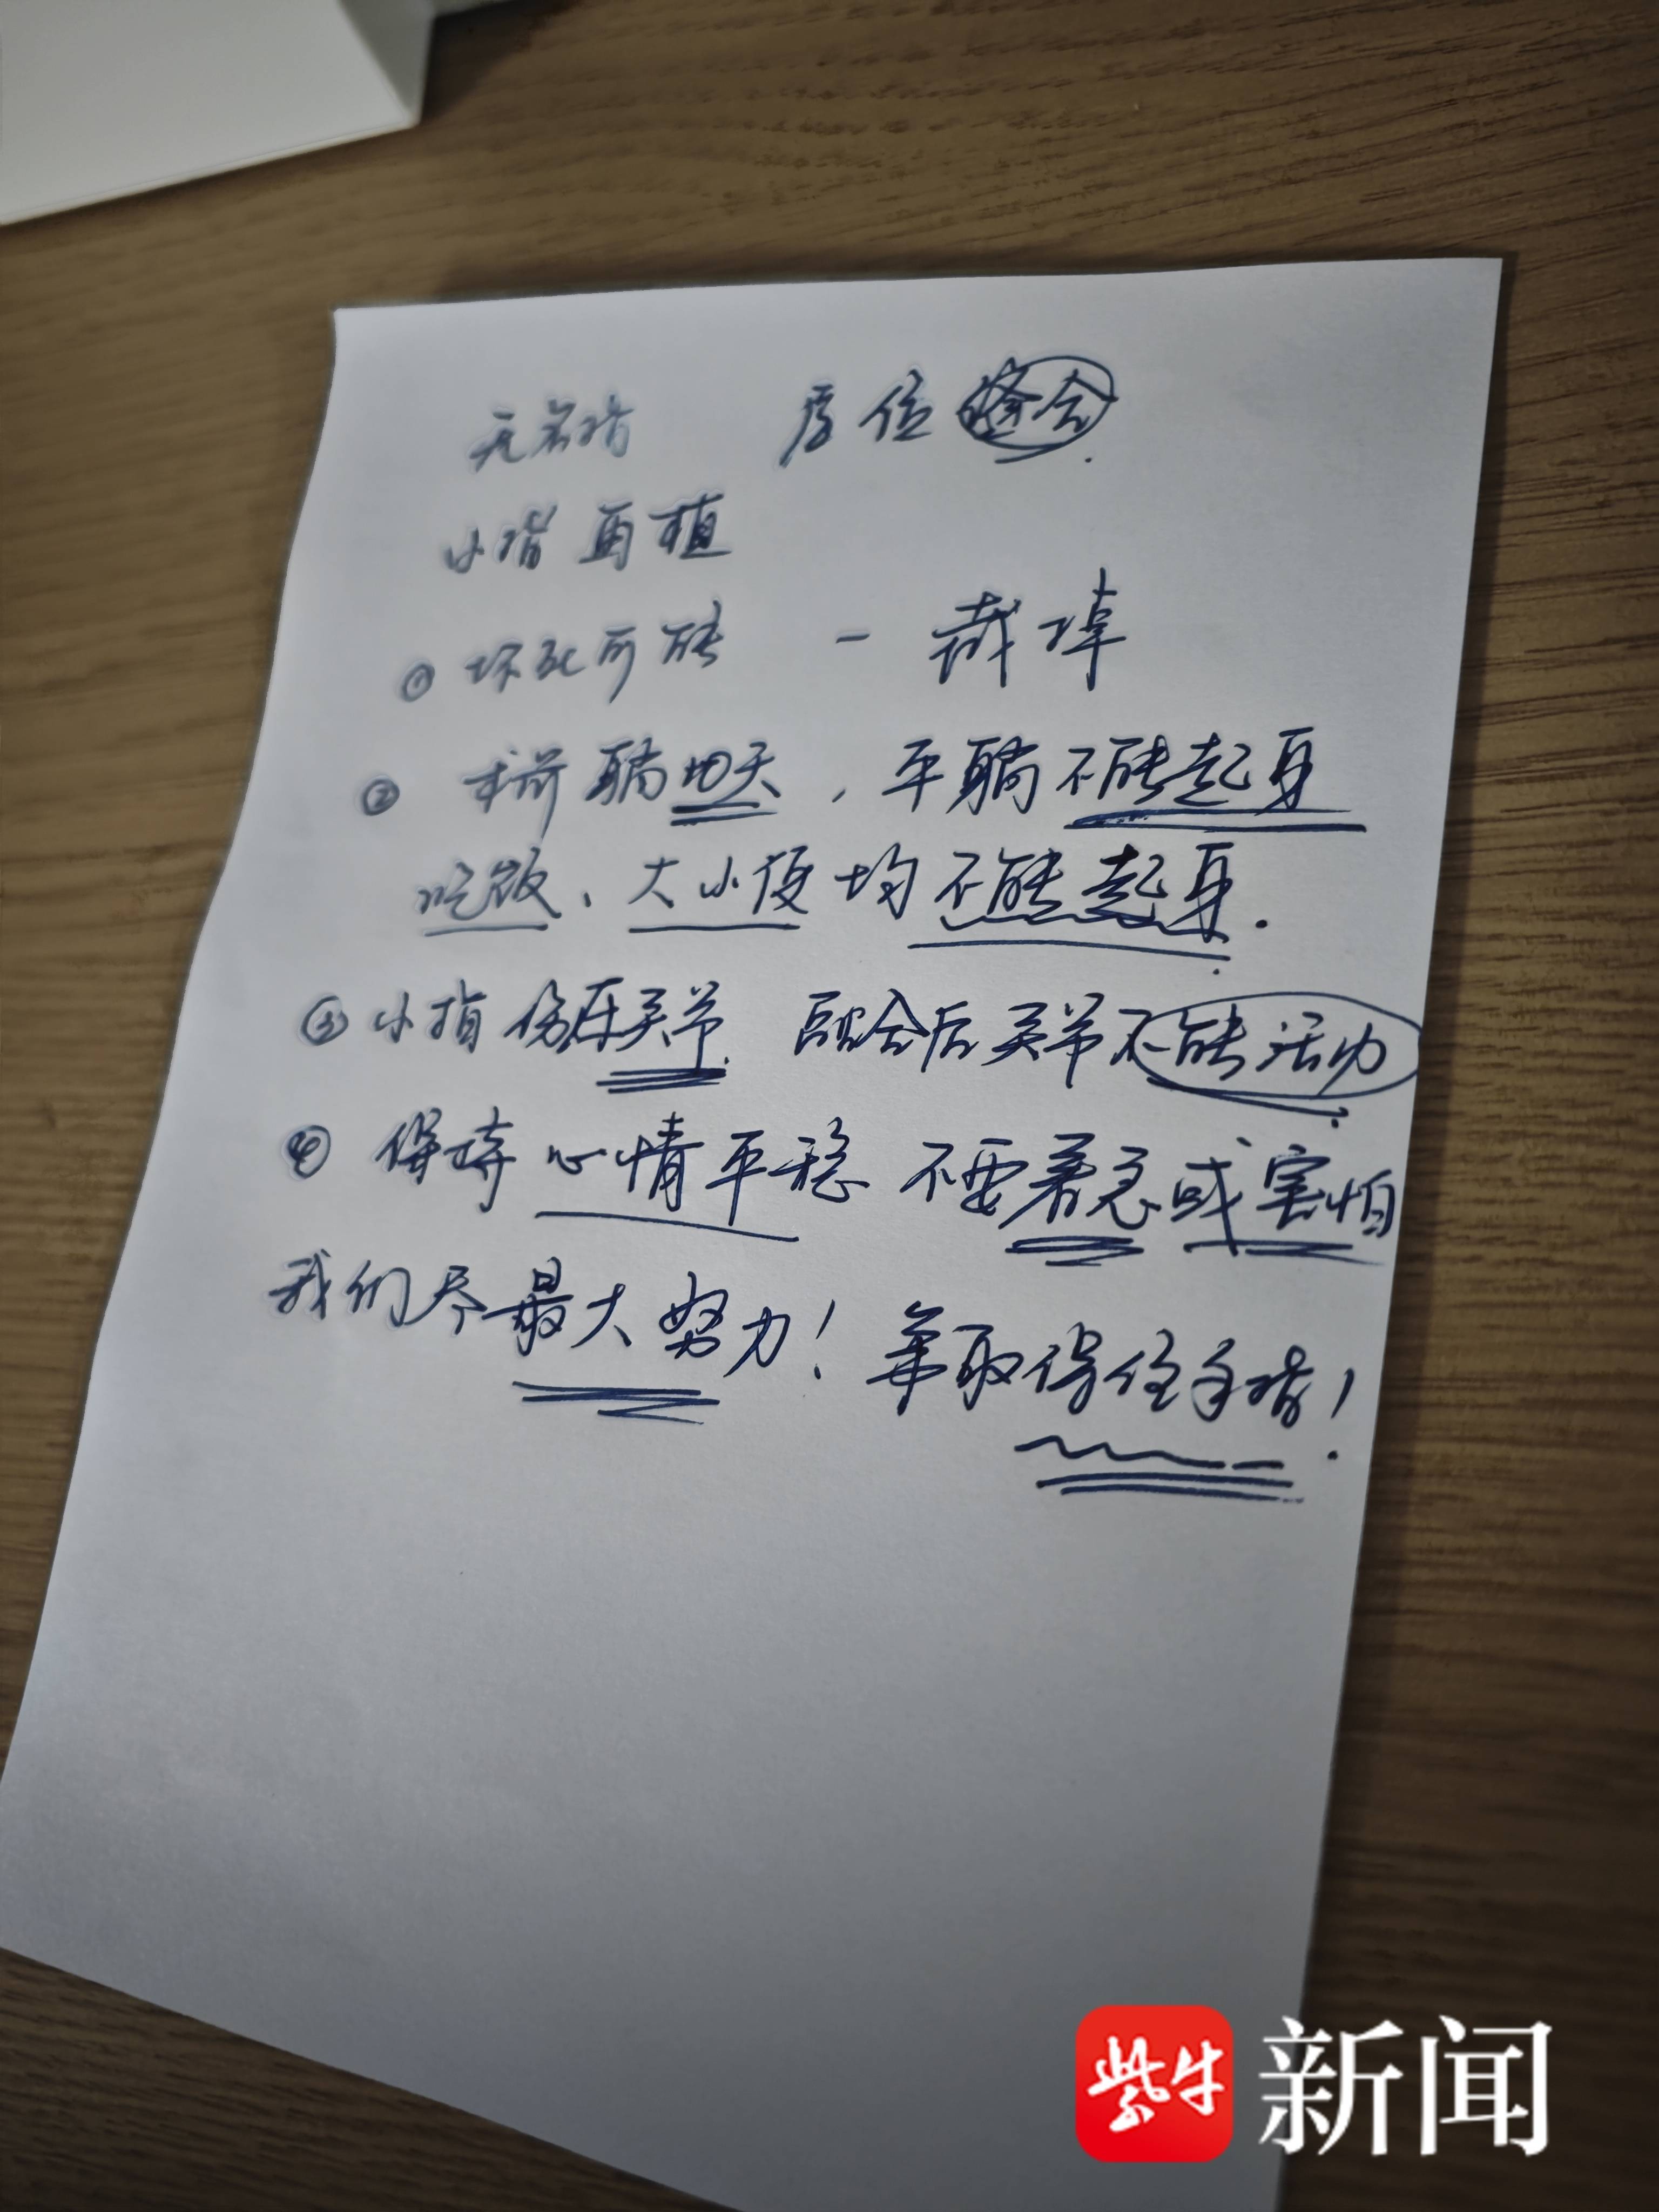 无名指 原位缝合.
小指再植
① 坏死可能 - 截掉
② 术前躺10天，平躺不能起身
吃饭、大小便均不能起身.
③ 小指伤在关节. 融合后关节不能活动
④ 保持心情平稳 不要着急或害怕
我们尽最大努力！争取保住手指！
紫牛 新闻